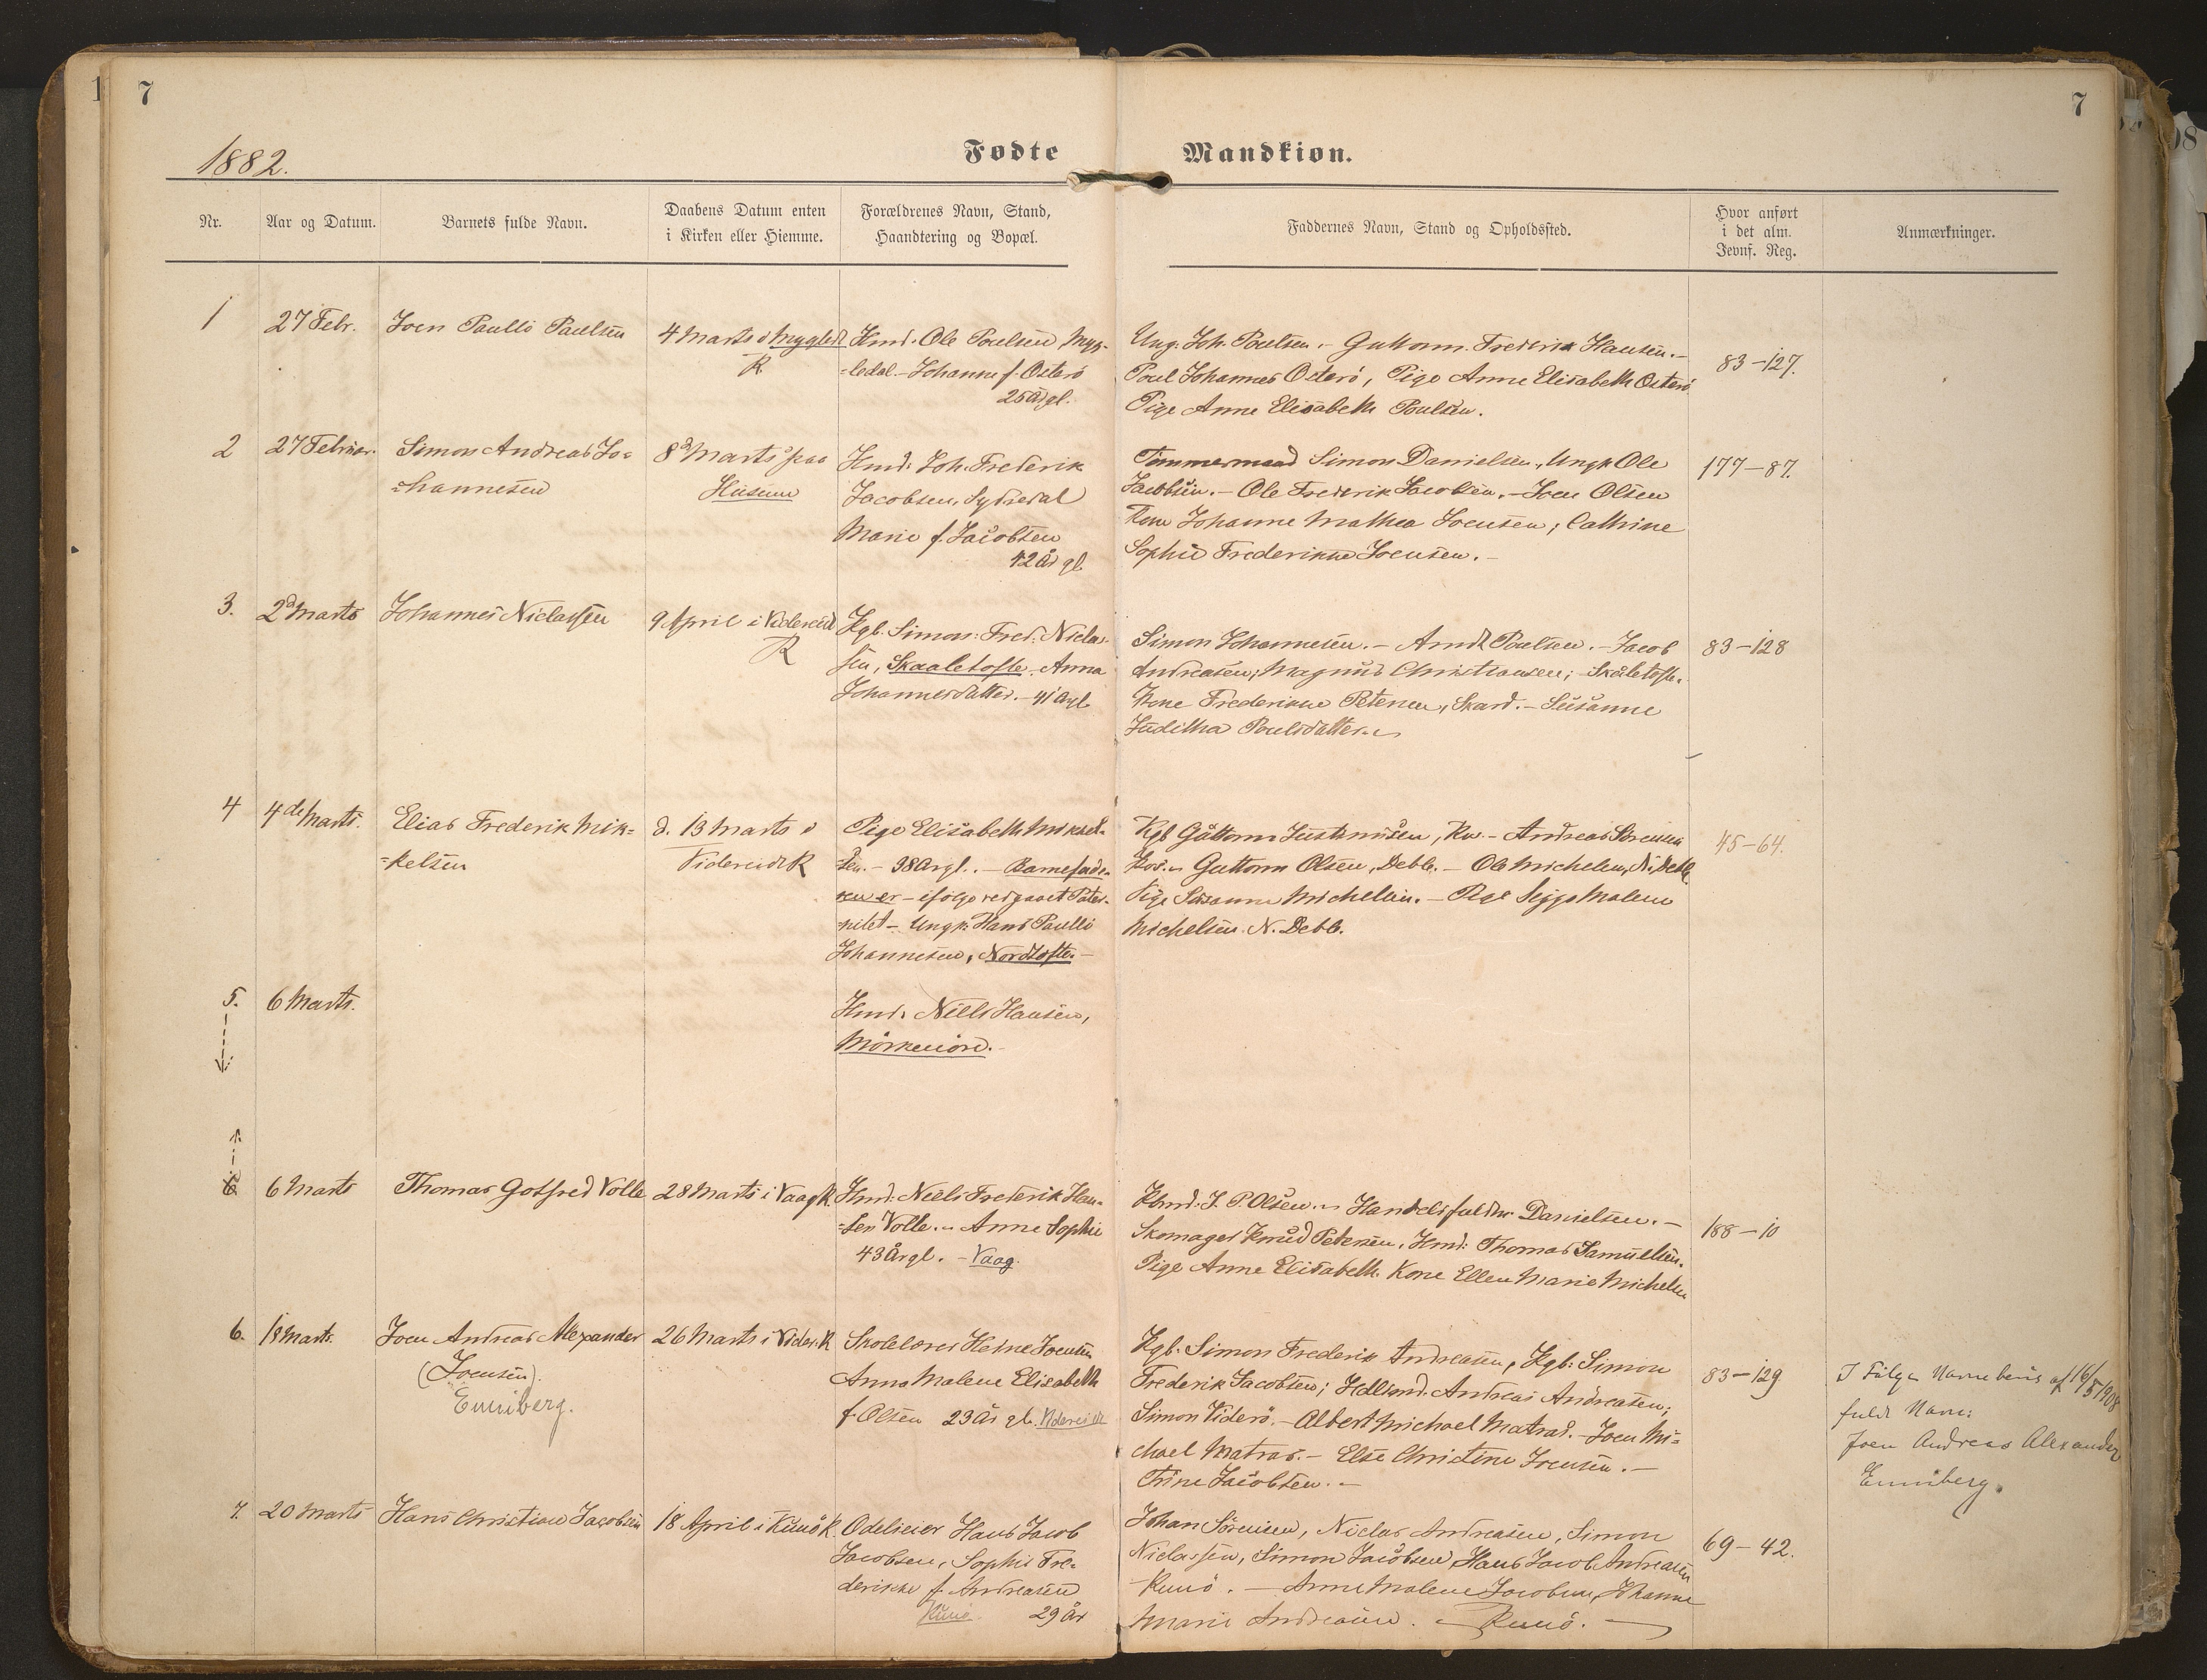 7
7
1882.
Fødte
Mandkiøn.
Nr.
Aar og Datum.
Barnets fulde Navn.
Daabens Datum enten
i Kirken eller Hiemme.
Forældrenes Navn, Stand,
Haandtering og Bopæl.
Faddernes Navn, Stand og Opholdssted.
Hvor anført
i det alm.
Jevnf. Reg.
Anmærkninger.
1
27 Febr.
Joen Paulli Paulsen
4 Marts i Mygled
K
Hmd. Ole Poulsen, Myg-
=ledal - Johanne f. Osterö
25 År gl.
Ung: Joh. Poulsen. - Guttorm Frederik Hansen. -
Poul Johannes Osterö, Pige Anne Elisabeth Osterö
Pige Anne Elisabeth Poulsen.
83-127.
2
27 Februar.
Simon Andreas Jo=
=hannesen
8d Marts paa
Husum
Hmd: Joh. Frederik
Jacobsen, Sydredal
Marie f. Jacobsen
42 År gl.
Tømmermand Simon Danielsen, Ungk Ole
Jacobsen. - Ole Frederik Jacobsen. - Joen Olsen
Kone Johanne Mathea Joensen; Cathrine
Sophie Frederikke Joensen. -
177-87.
3.
2d Marts
Johannes Niclassen
9 April i Videreid
K
Kgb. Simon Fred. Niclas-
sen, Skaaletofte. Anna
Johannesdatter. - 41 År gl.
Simon Johannesen. - Arndt Poulsen. - Jacob
Andreasen; Magnus Christiansen; Skåletofte.
Kone Frederikke Petersen, Skard. - Susanne
Juditha Poulsdatter.
83-128
4
4de Marts.
Elias Frederik Mik=
=kelsen
d. 13 Marts i
Videreidi K
Pige Elisabeth Mikkel-
sen. - 38 År gl. - Barnefade-
ren er - ifölge vedgaaet Pater-
nitet - Ungk: Hans Paulli
Johannesen, Nordtofte. -
Kgb Guttorm Justinusen, Kv. - Andreas Sörensen
Guttorm Olsen, Debb. - Ole Michelsen, N. Debb.
Pige Susanne Michelsen. - Pige Malene
Michelsen N. Debb.
45-64.
5.
6 Marts.
Hmd. Niels Hansen,
Mörkeniöre.
6
6 Marts
Thomas Gotfred Volle
28 Marts i Vaag K.
Hmd. Niels Frederik Han-
=sen Volle. Anne Sophie
43 År gl. - Vaag.
Kbmd. J. P. Olsen. Handelsfuldm. Danielsen. -
Skomager Knud Petersen. Hmd: Thomas Samuelsen.
Pige Anne Elisabeth. Kone Ellen Marie Michelsen
188-10
6.
18 Marts.
Joen Andreas Alexander
(Joensen).
Enniberg.
26 Marts i Vider. K
Skolelærer Heine Joensen
Anna Malene Elisabeth
f. Olsen 23 År gl. Videreide
Kgb. Simon Frederik Andreasen, Kgb: Simon
Frederik Jacobsen; Hdlsmd. Andreas Andreasen;
Simon Viderö. - Albert Michael Matras. - Joen Mi=
chael Matras. - Else Christine Joensen. -
Trine Jacobsen. -
83-129
I Følge Navnebevis af 16/5 1908
fulde Navn:
Joen Andreas Alexander
Enniberg.
7.
20 Marts
Hans Christian Jacobsen
18 April i Kunö K.
Odelseier Hans Jacob
Jacobsen, Sophie Fre-
derikke f. Andreasen
Kunö. 29 År
Johan Sörensen, Niclas Andreasen, Simon
Niclassen, Simon Jacobsen Hans Jacob Andreasen
Kunö. - Anne Malene Jacobsen, Johanne
Marie Andreasen. - Kunö. -
69-42.